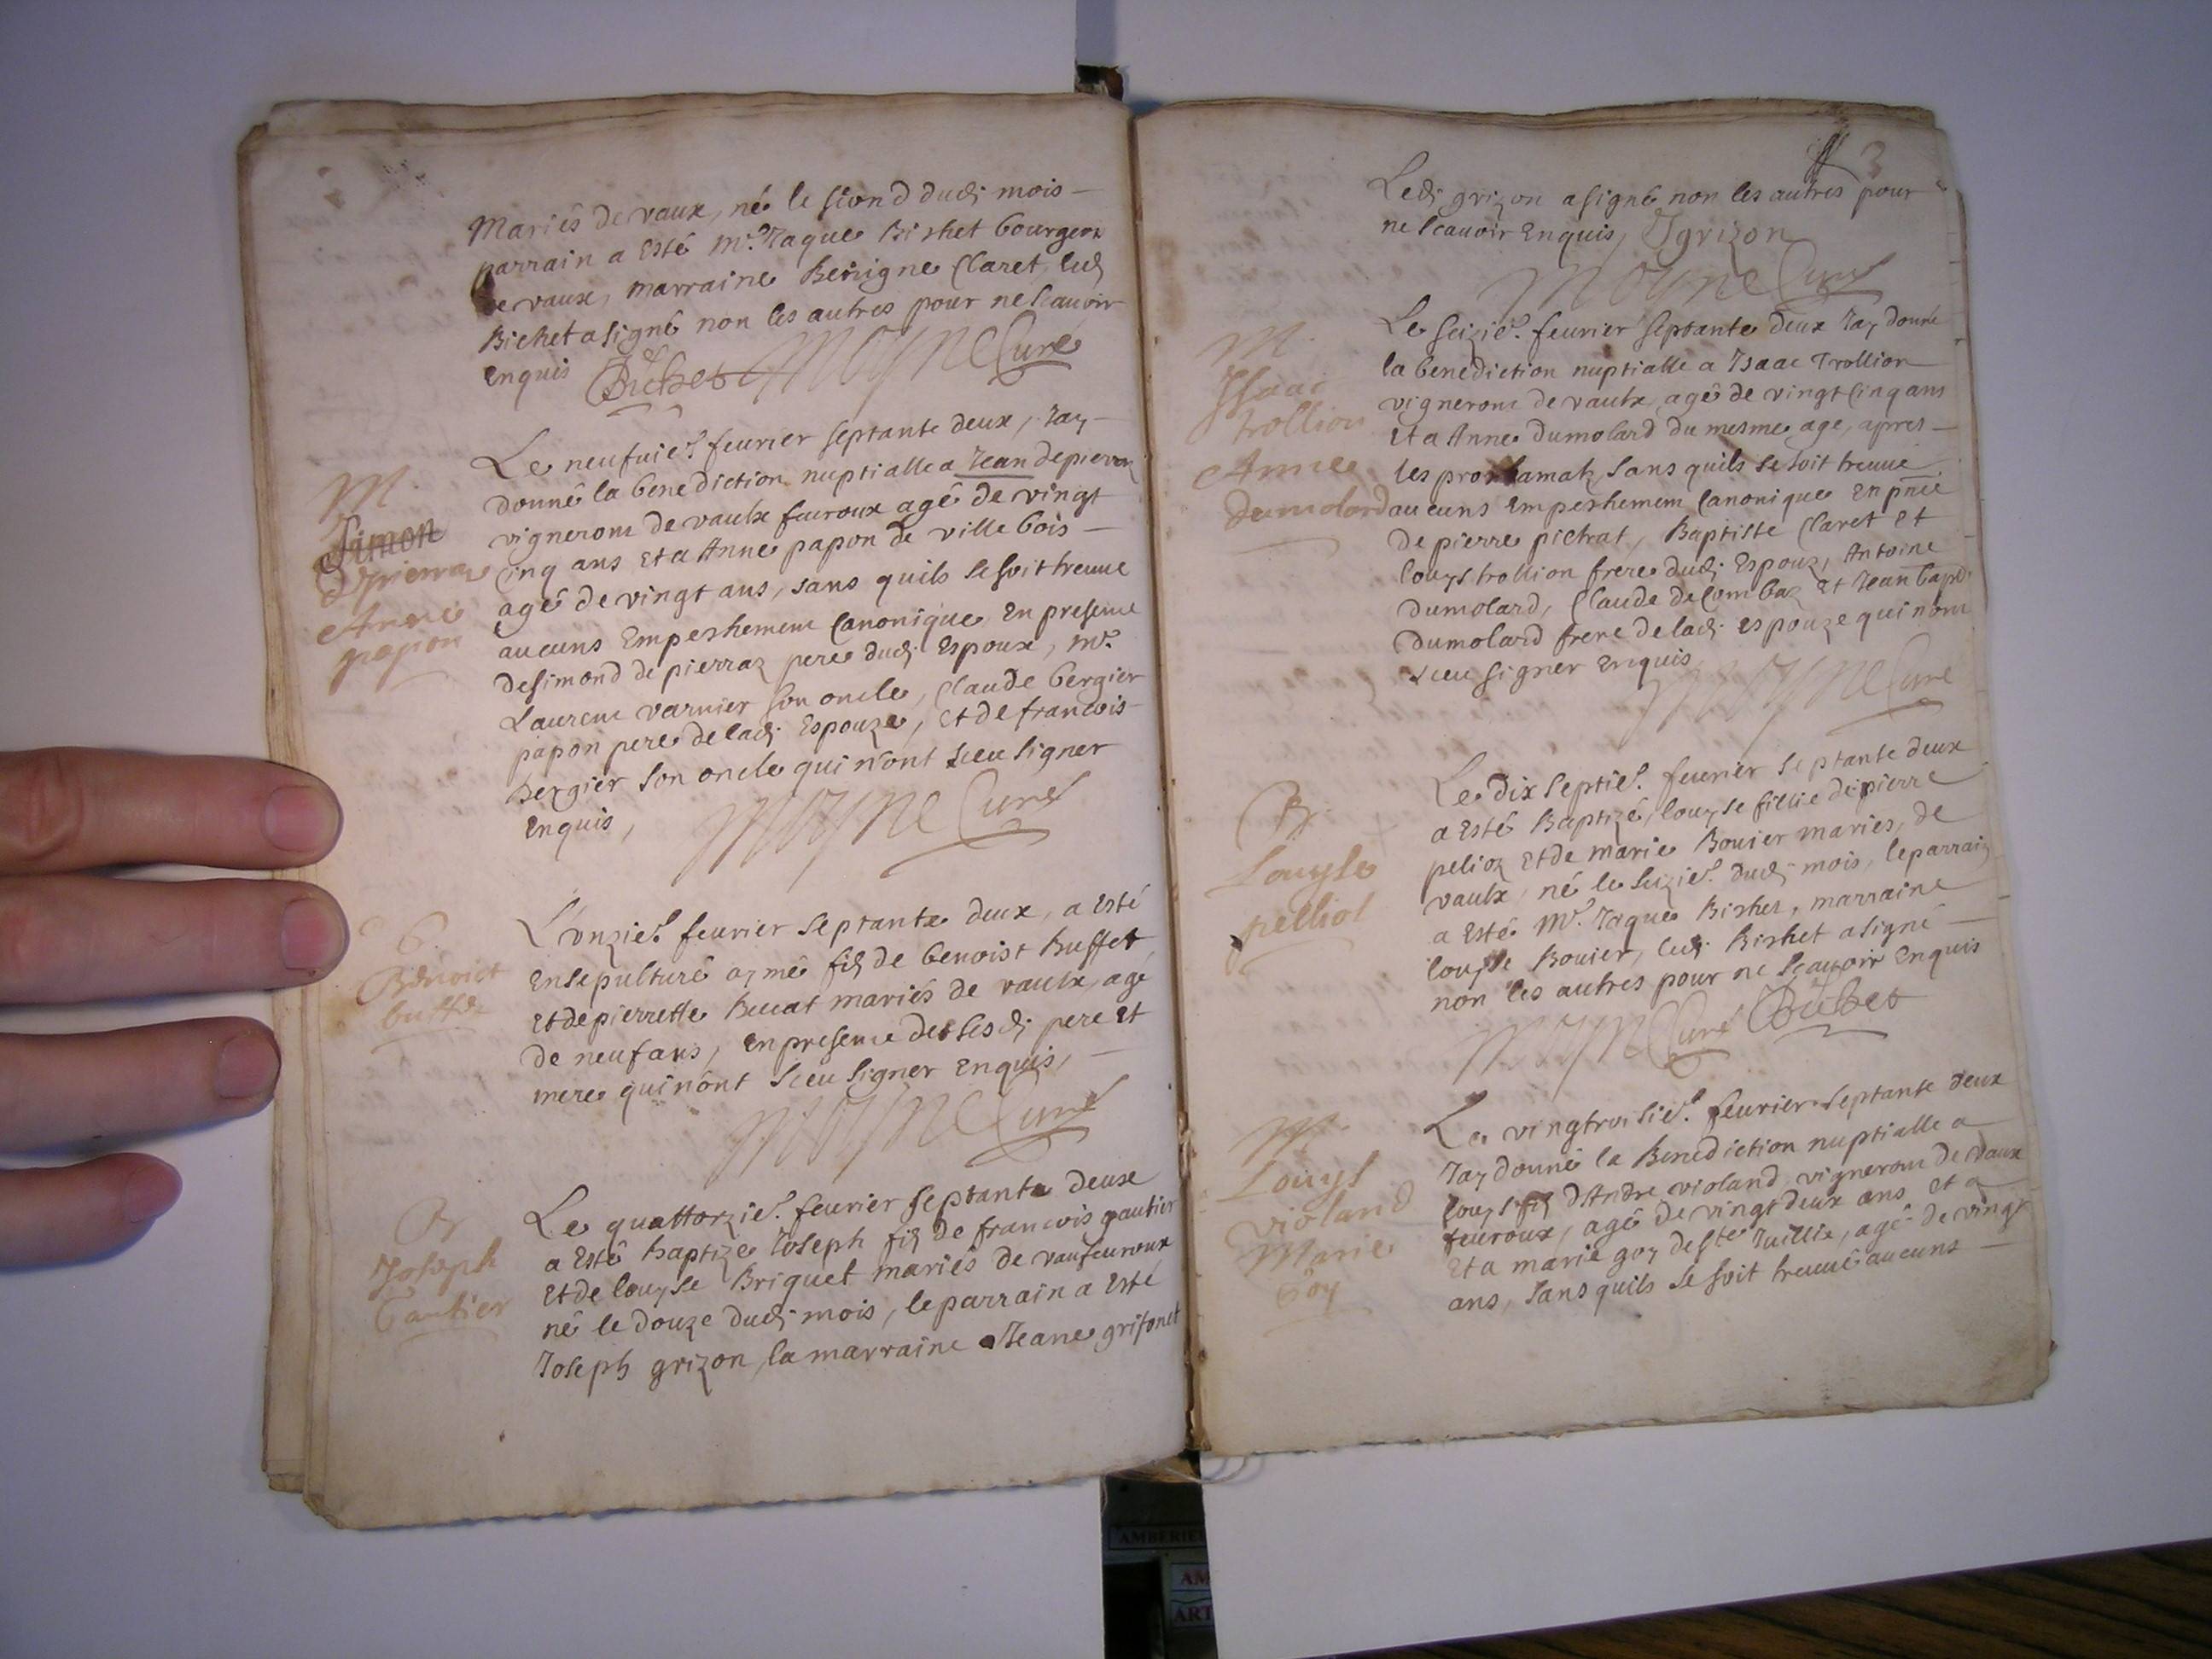 Mariés de vaux, né le second dudi mois
parrain a Esté Mr. Jaque Bichet bourgeois
de vaux, marraine Benigne Claret, ledi
Bichet a signé non les autres pour ne scauoir
Enquis Bichet MOYNE Curé
M.
Simon
Depierraz
Anne
papon
Le neufuie. feurier septante deux, Jay
donné la benediction nuptialle a Jean depierraz
vigneront de vaulx feuroux agé de vingt
Cinq ans Et a Anne papon de ville bois
agé de vingt ans, sans quils se soit treuue
aucuns Empeshement Canonique En presence
de simond de pierraz pere dudi Espoux, Mr.
Laurent varnier son oncle, Claude bergier
papon pere de ladi Espouze, Et de francois
bergier son oncle qui n'ont sceu signer
Enquis, MOYNE Curé
6.
Benoict
buffet
L'onzie. feurier septante deux, a Esté
Ensepulturé aymé fis de benoist Buffet
Et de pierrette Bucat mariés de vaulx, agé
de neuf ans, En presence de sesdi pere Et
mere qui n'ont sceu signer Enquis,
MOYNE Curé
B
Joseph
Gautier
Le quattorzie. feurier septante deux
a Esté baptize Joseph fis de francois gautier
Et de louyse Briquet mariés de vaufeuroux
né le douze dudi mois, le parrain a Esté
Joseph grizon, la marraine Jeane grisonet
3
Ledi grizon a signé non les autres pour
ne scauoir Enquis, J grizon
MOYNE Curé
M.
Isaac
trollion
Anne
dumolard
Le seizie. feurier septante deux Jay donné
la benediction nuptialle a Isaac Trollion
vigneront de vaulx, agé de vingt Cinq ans
Et a Anne Dumolard du mesme age, apres
les proclamatz, sans quils se soit treuue
aucuns Empeshement Canonique En pnce
de pierre pichat, Baptiste Claret Et
louys trollion frere dudi Espoux, Antoine
Dumolard, Claude de Combaz Et Jean bapt.
Dumolard frere de ladi Espouze qui n'ont
sceu signer Enquis, MOYNE Curé
B
Louyse
pelliot
Le dix septie. feurier septante deux
a Esté Baptizé, louyse fillie de pierre
pelioz Et de marie Bouier mariés, de
vaulx, né le seizie. dudi mois, le parrain
a Esté Mr. Jaque Bichet, marraine
louyse Bouier, ledi Bichet a signé
non les autres pour ne scauoir Enquis
MOYNE Curé Bichet
M.
Louys
violand
Marie
Goy
Le vingtroisie. feurier septante deux
Jay donné la Benediction nuptialle a
louys fis d'Andre violand vigneront de vaux
feuroux, agé de vingt deux ans Et a
Et a marie goy de ste Juillie, agé de vingt
ans, sans quils se soit treuué aucuns
AMBERIE
AM
ART